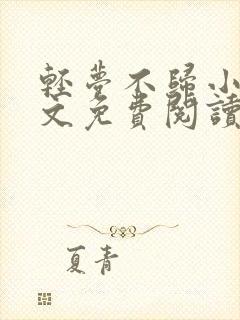 輕夢不歸小
文免費閱讀
夏青